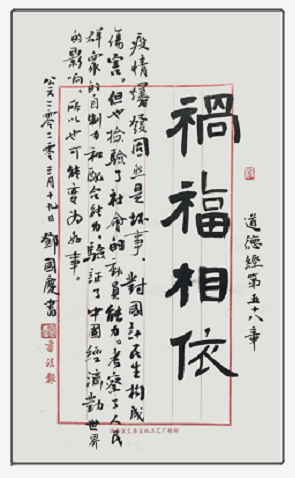 禍福相依
道德經第五十八章
疫情爆發固然是坏事，對國計民生构成
傷害。但也检驗了社會的動員能力。考察了人民
群衆的自制力和配合能力，驗証了中國經濟對世界
的影响。所以也可能变为好事。
公元二零二零三月十九日 鄧國慶書
書法報